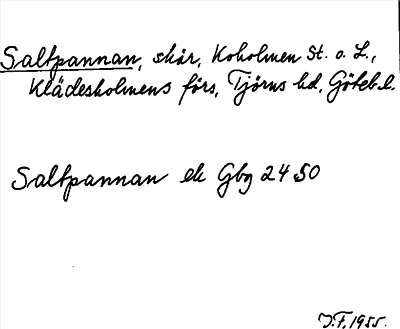 Saltpannan, skär, Koholmen St. o. L.,
Klädesholmens förs, Tjörns hd, Göteb.l.
Saltpannan ek Gbg 24 SO
J.F. 1955.